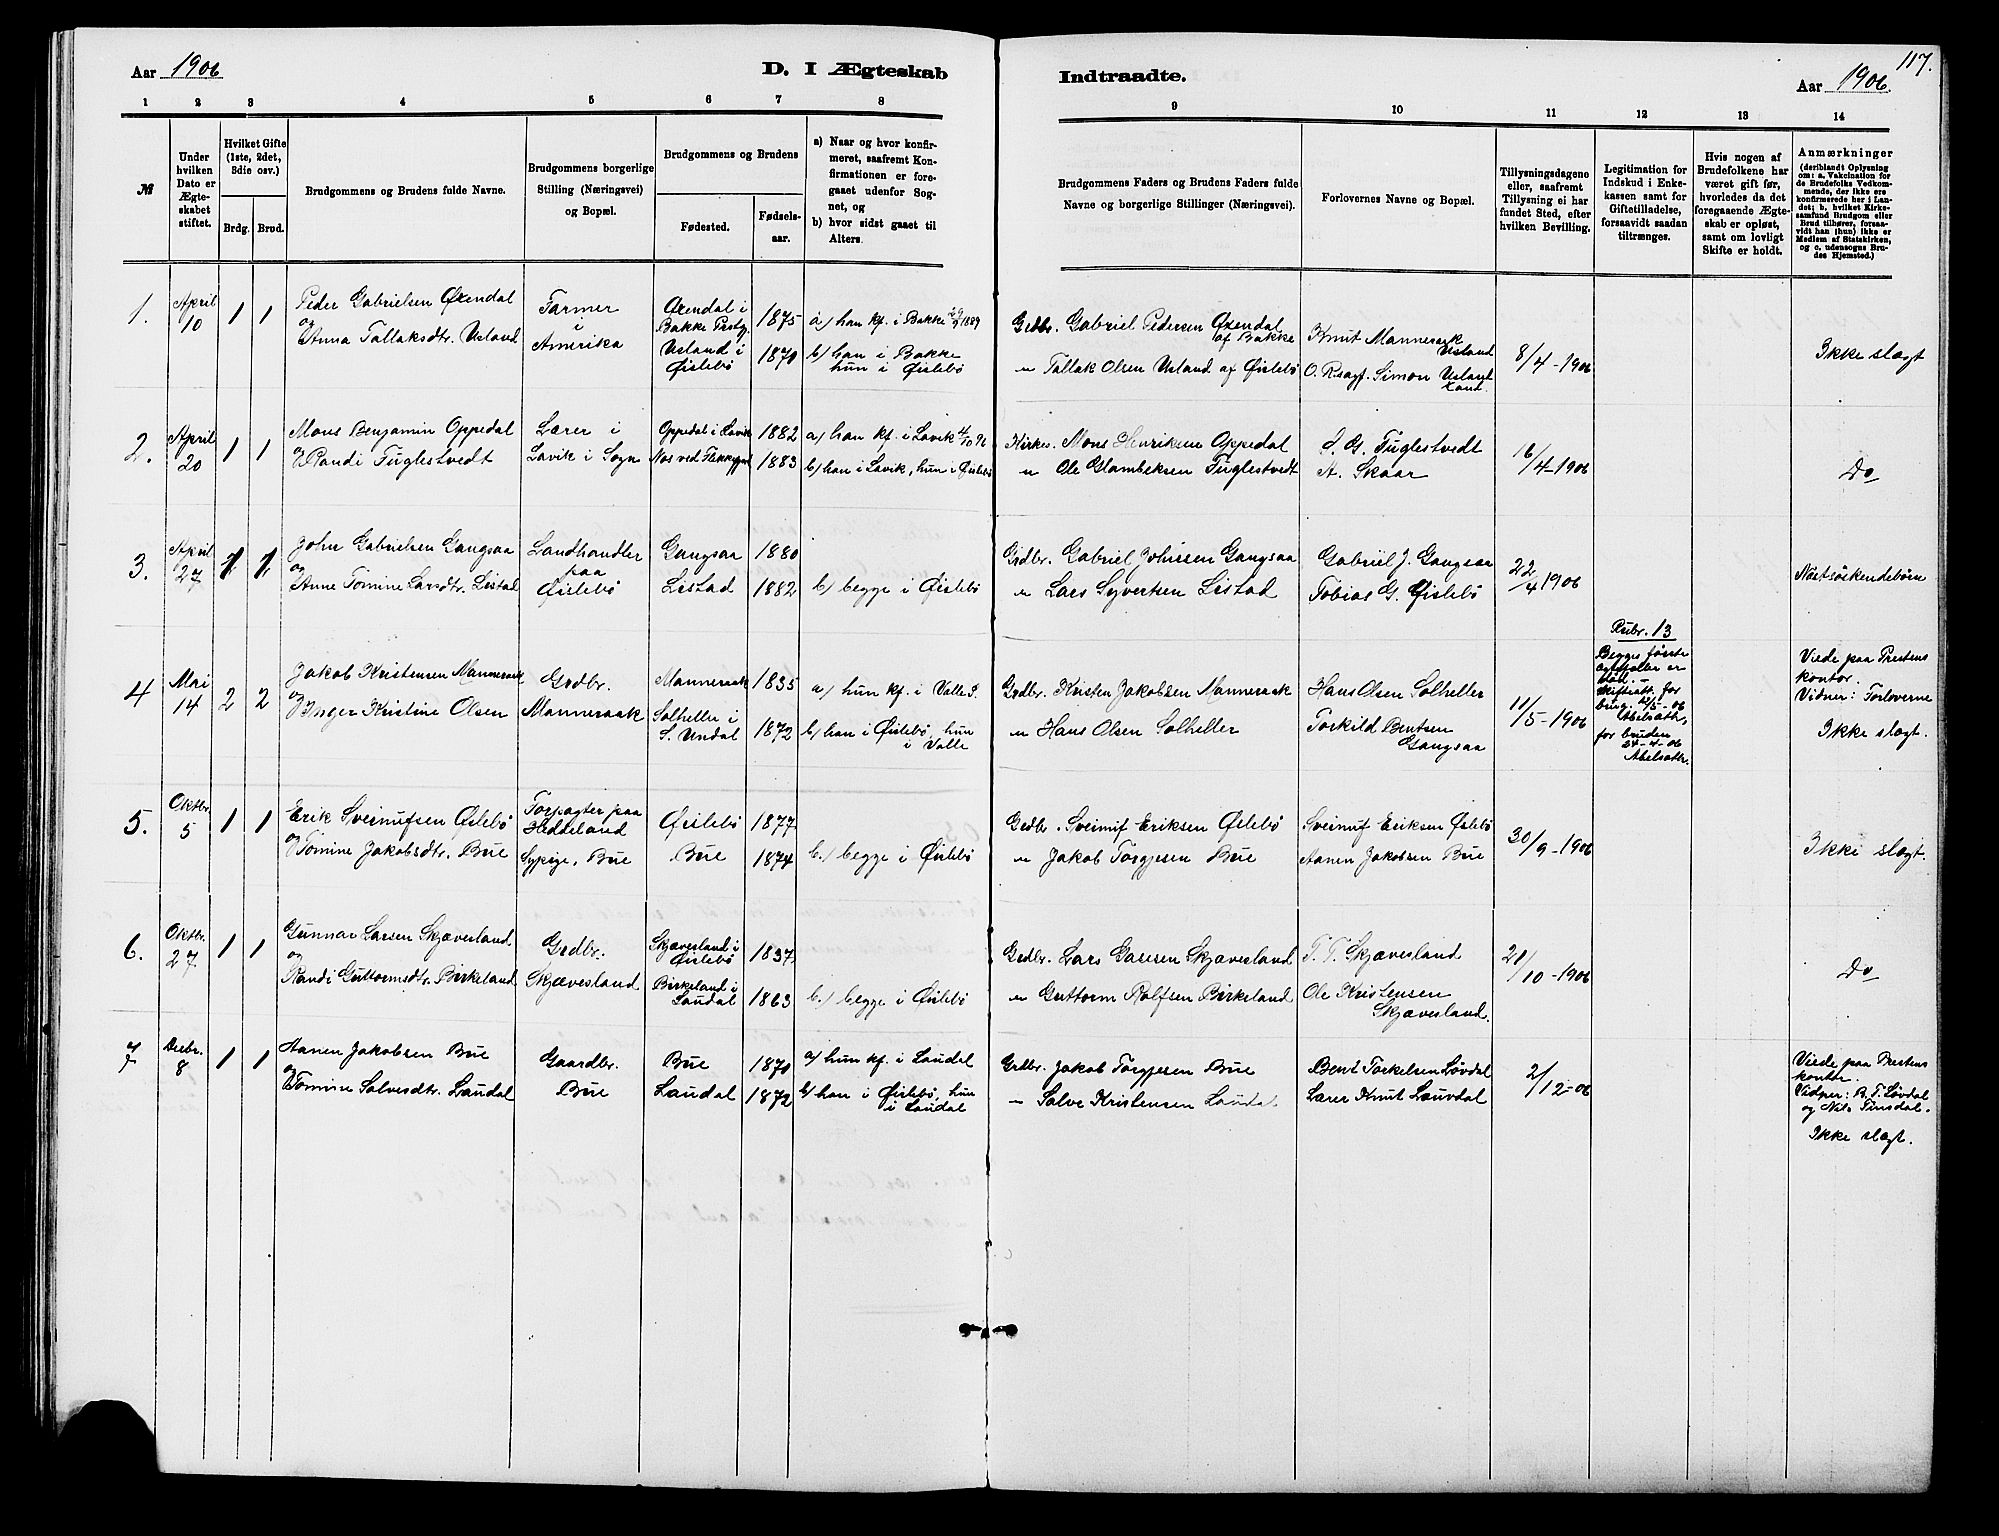 Aar 1906
D. I Ægteskab
Indtraadte.
117.
Aar 1906.
1 2 3 4 5 6 7 8
9 10 11 12 13 14
№
Under hvilken Dato er Ægteskabet stiftet.
Hvilket Gifte (1ste, 2det, 3die osv.)
Brdg. Brud.
Brudgommens og Brudens fulde Navne.
Brudgommens borgerlige Stilling (Næringsvei) og Bopæl.
Brudgommens og Brudens
Fødested.
Fødselsaar.
a) Naar og hvor konfirmeret, saafremt Konfirmationen er foregaaet udenfor Sognet, og
b) hvor sidst gaaet til Alters.
Brudgommens Faders og Brudens Faders fulde Navne og borgerlige Stillinger (Næringsvei).
Forlovernes Navne og Bopæl.
Tillysningsdagene eller, saafremt Tillysning ei har fundet Sted, efter hvilken Bevilling.
Legitimation for Indskud i Enkekassen samt for Giftetilladelse, forsaavidt saadan tiltrænges.
Hvis nogen af Brudefolkene har været gift før, hvorledes da det foregaaende Ægteskab er opløst, samt om lovligt Skifte er holdt.
Anmærkninger
(deriblandt Oplysning om: a. Vakcination for de Brudefolks Vedkommende, der ikke ere konfirmerede her i Landet; b. hvilket Kirkesamfund Brudgom eller Brud tilhører, forsaavidt han (hun) ikke er Medlem af Statskirken, og c. udensogns Brudes Hjemsted.)
1. April 10 1 1
Peder Gabrielsen Øxendal
og Anna Tallaksdtr. Usland
Farmer
i
Amerika
Øxendal i
Bakke Prstg.
Usland i
Øislebø
1875
1870
a) han kf. i Bakke 1889
b) han i Bakke
hun i Øislebø
Grdbr. Gabriel Pedersen Øxendal
af Bakke
" Tallak Olsen Usland af Øislebø
Knut Manneraak
Usland
Simon Usland
8/4-1906
Ikke slægt
2. April 20 1 1
Mons Benjamin Oppedal
og Randi Fuglestvedt
Lærer i
Lavik i Sogn
Oppedal i Lavik
1882
1883
a) han kf. i Lavik 4/10 96
b) han i Lavik, hun i Øislebø
Kirkes. Mons Henriksen Oppedal
" Ole Glambeksen Fuglestvedt
S. G. Fuglestvedt
A. Skaar
16/4-1906
Do
3. April 27 1 1
John Gabrielsen Gangsaa
og
Anne Tomine Larsdtr. Listad
Landhandler
paa
Øislebø
Gangsaa
Listad
1880
1882
b) begge i Øislebø
Grdbr. Gabriel Johnsen Gangsaa
" Lars Syvertsen Listad
Gabriel J. Gangsaa
Tobias G. Øislebø
22/4 1906
Næstsøskendebørn
4 Mai 14 2 2
Jakob Kristensen Manneraak
og Inger Kristine Olsen
Grdbr.
Manneraak
Manneraak
Solhelle i
S. Undal
1835
1872
a) hun kf. i Valle S.
b) han i Øislebø, hun
i Valle
Grdbr. Kristen Jakobsen Manneraak
" Hans Olsen Solheller
Hans Olsen Solheller
Torkild Bentsen
Gangsaa
11/5-1906
Rubr. 13
Begges første
Skifteatt. for
for bruden
24-4-06
Viede paa Prestens
kontor.
Vidner: Forloverne
Ikke slægt.
5. Oktbr. 5 1 1
Erik Sveinufsen Øslebø
og Tomine Jakobsdtr. Bue
Forpagter paa
Heddeland
Sypige, Bue
Øislebø
Bue
1877
1874
b.) begge i Øislebø
Grdbr. Sveinuf Eriksen Øslebø
" Jakob Torgjesen Bue
Sveinuf Eriksen Øslebø
Aanen Jakobsen Bue
30/9-1906
Ikke slægt.
6. Oktbr. 27 1 1
Gunnar Larsen Skjævesland
og
Randi Guttormsdtr. Birkeland
Grdbr.
Skjævesland
Skjævesland i
Øislebø
Birkeland i
Laudal
1837
1863
b.) begge i Øislebø
Grdbr. Lars Larsen Skjævesland
" Guttorm Rolfsen Birkeland
T. T. Skjævesland
Ole Kristensen
Skjævesland.
21/10-1906
Do
7 Decbr. 8 1 1
Aanen Jakobsen Bue
og Tomine Salvesdtr. Laudal
Gaardbr.
Bue
Bue
Laudal
1870
1872
a) hun kf. i Laudal
b) han i Øislebø, hun
i Laudal
Grdbr. Jakob Torgjesen Bue
" Salve Kristensen Laudal
Bent Torkelsen Løvdal
Lærer Knut Lauvdal
2/12-06
Viede paa Prestens
kontor.
Vidner: B. T. Løvdal
og Nils Finsdal.
Ikke slægt.